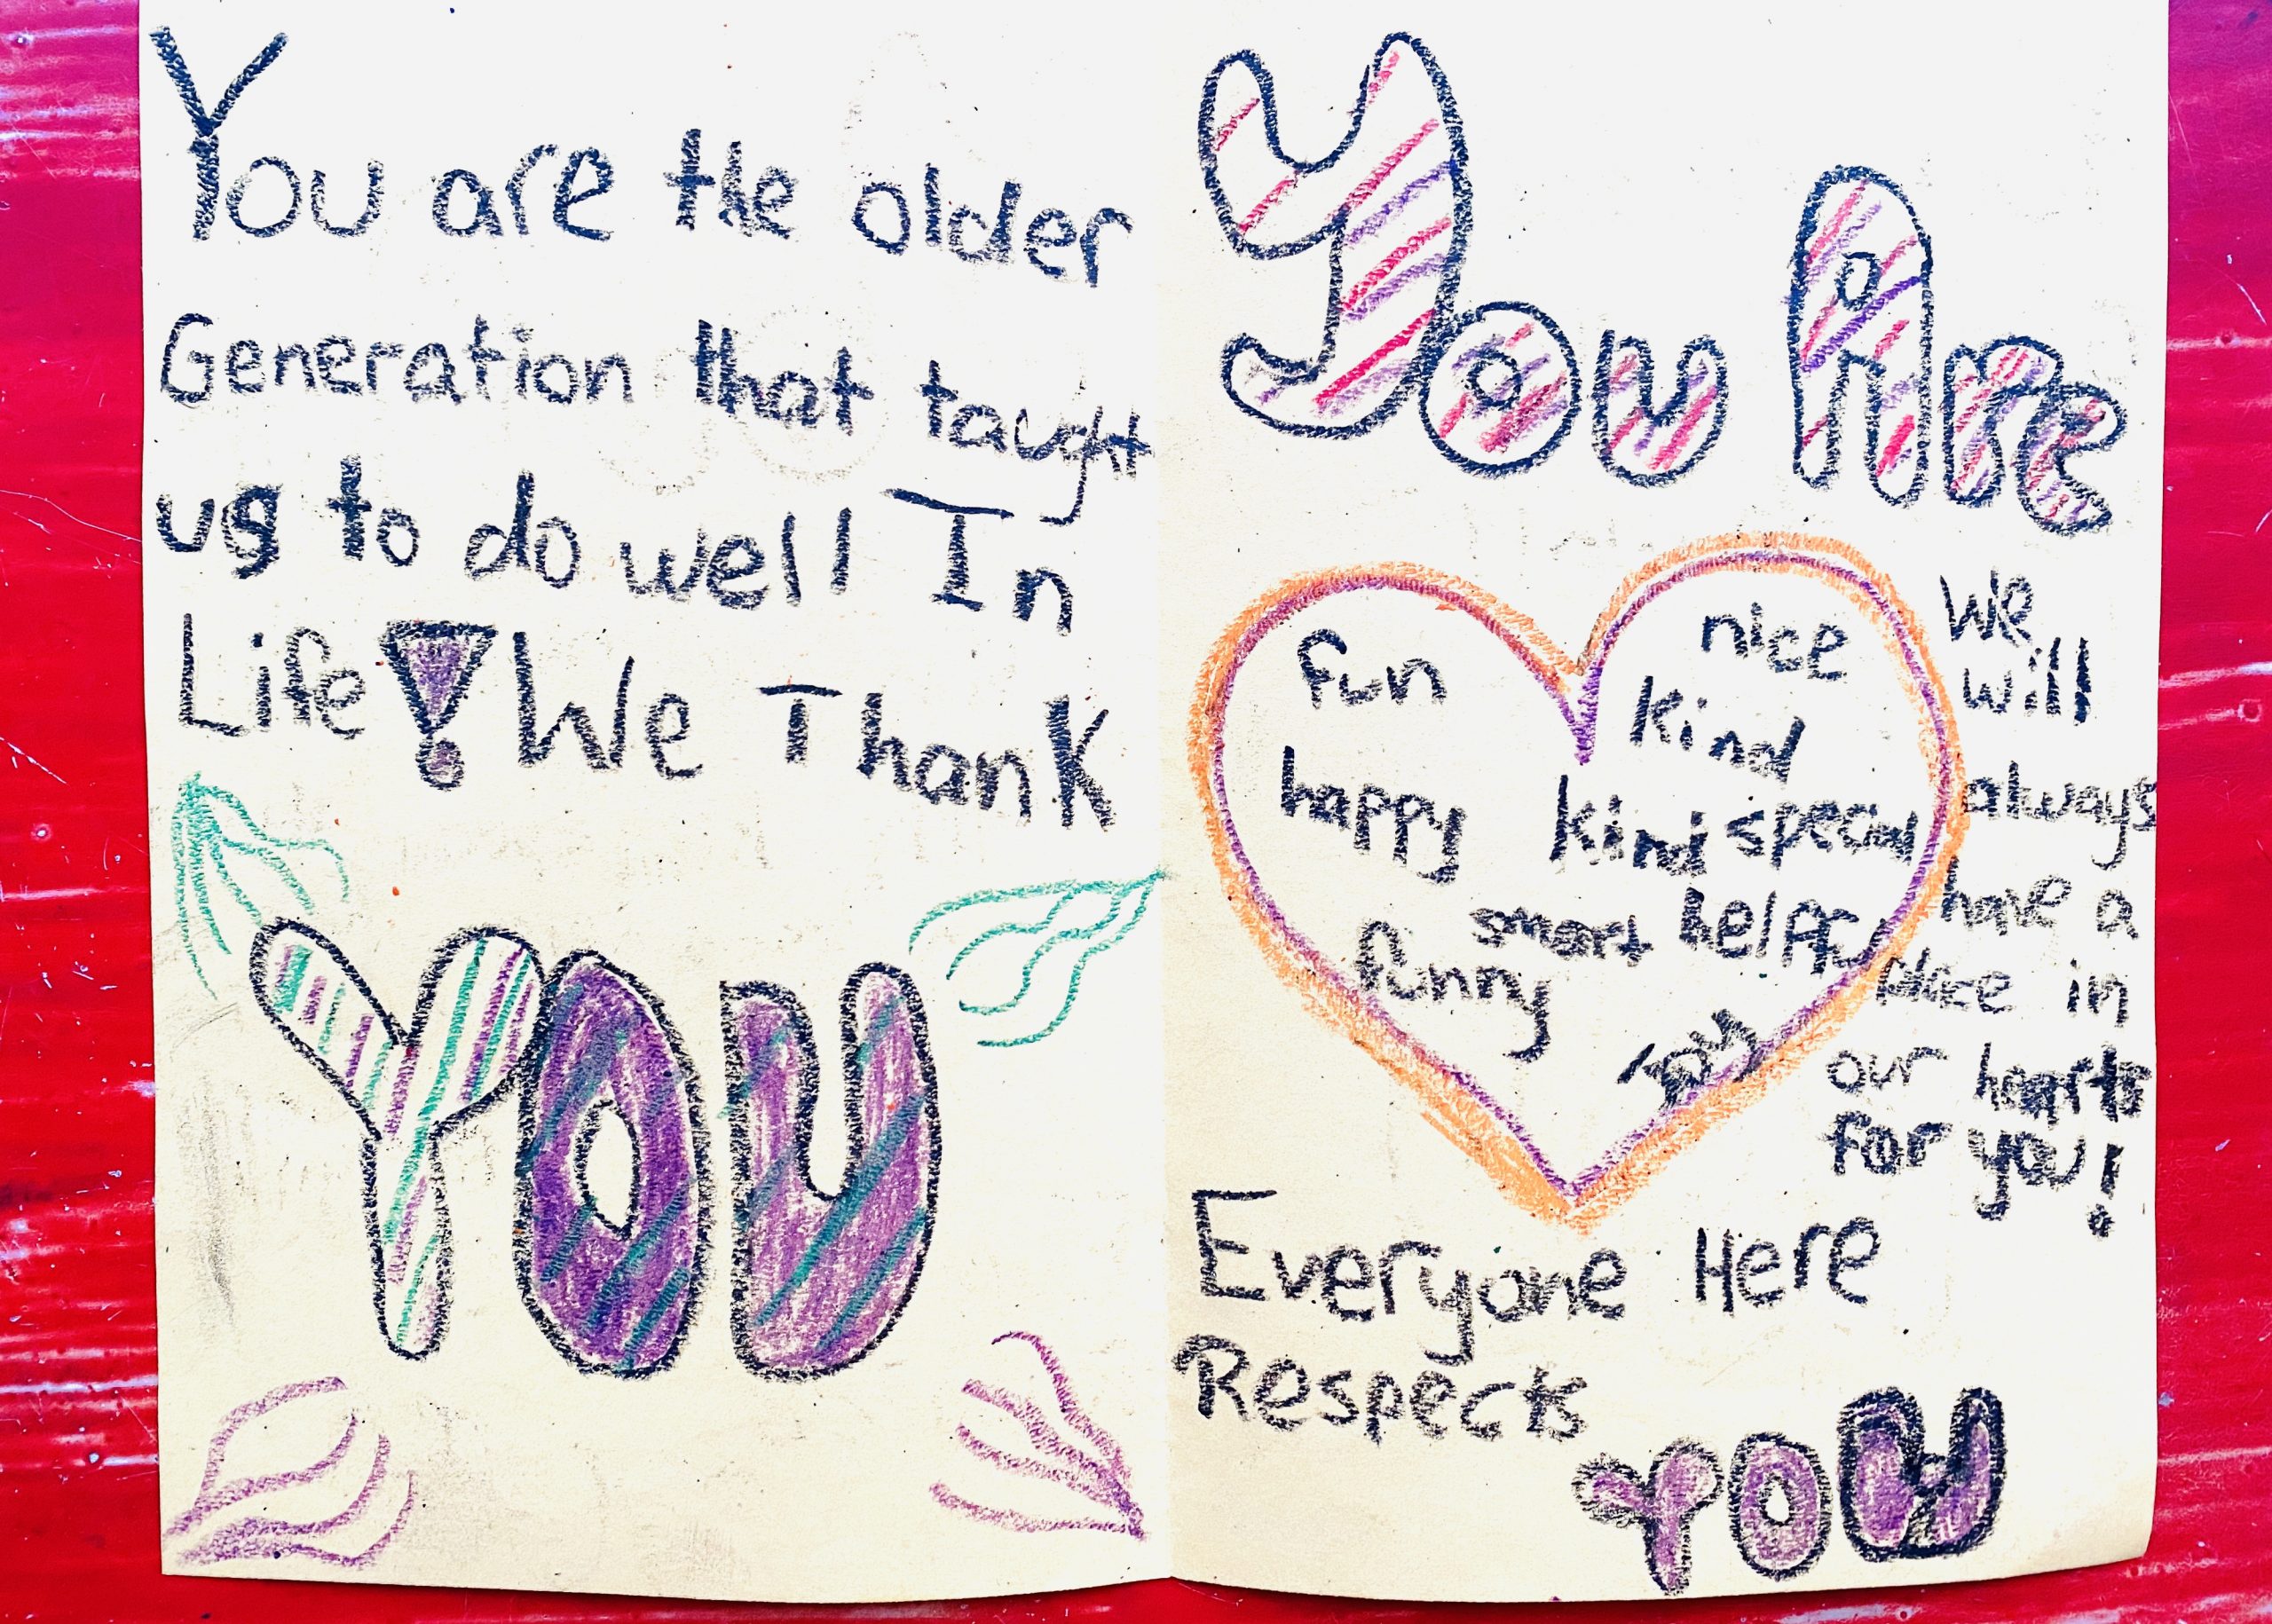 You are the older
Generation that taught
us to do well In
Life! We Thank
YOU
You Are
fun
nice
kind
happy
kind special
smart helpful
funny
We
will
always
have a
place in
our hearts
for you!
Everyone Here
Respects
YOU